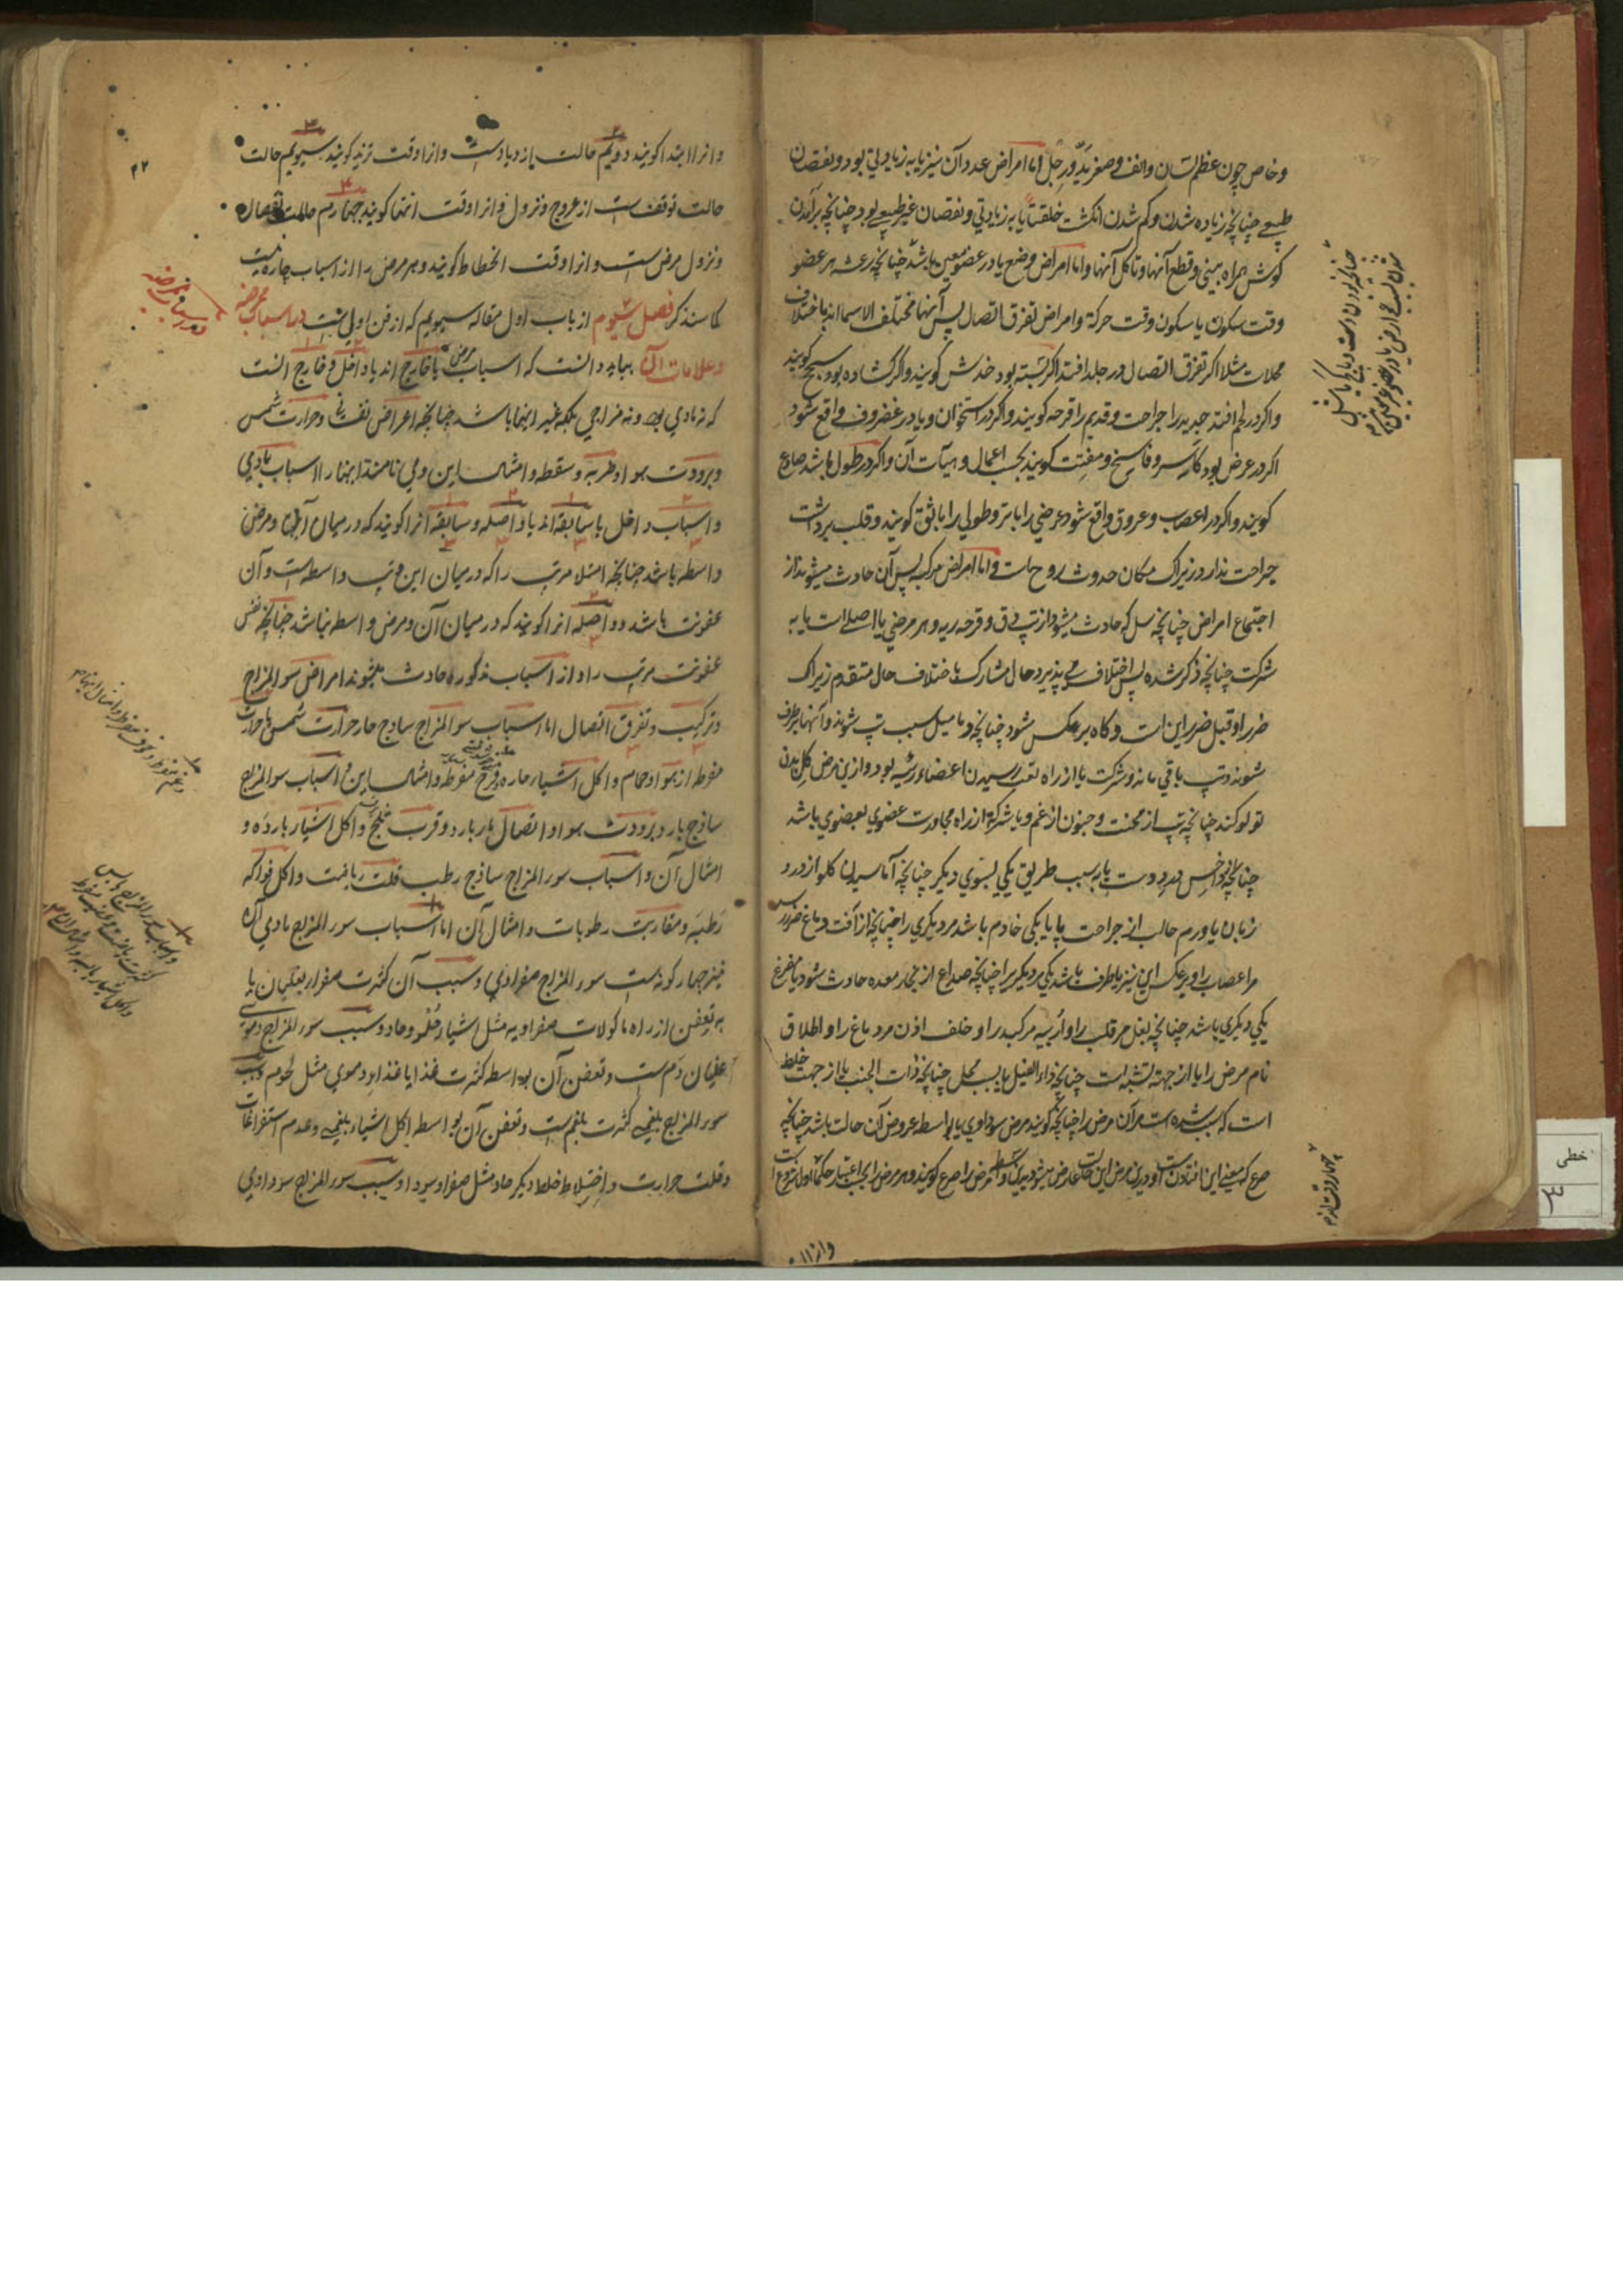 وخاص چون عظم لسان وانف وصغر ید ورجل اما امراض عدد آن نیز یا به زیادتی بود و نقصان
طبیعی چنانچه زیاده شدن و کم شدن انکشت خلقتا یا به زیادتی و نقصان غیر طبیعی بود چنانچه برآمدن
کوش همراه بینی و قطع آنها و تاکل آنها و اما امراض وضع یا در عضو معین باشد چنانچه رعشه هر عضو
وقت سکون یا سکون وقت حرکة و امراض تفرق اتصال پس آنها مختلف الاسما اند باختلاف
محلات مثلا اکر تفرق اتصال در جلد افتد اکر بسته بود خدش کویند و اکر کشاده بود سحج کویند
و اکر در لحم افتد جدید را جراحت و قدیم را قرحه کویند و اکر در استخوان و یا در غضروف واقع شود
اکر در عرض بود کاسر و فاسخ و مفتت کویند بحسب اعمال و هیآت آن و اکر در طول باشد صادع
کویند و اکر در اعصاب و عروق واقع شود عرضی را باتر و طولی را باثق کویند و قلب برداشت
جراحت ندارد زیراک مکان حدوث روح است و اما امراض مرکبه پس آن حادث میشوند از
اجتماع امراض چنانچه سل که حادث میشود از تپ دق و قرحه ریه و هر مرضی یا اصلی است یا به
شرکت چنانچه ذکر شده پس اختلاف می پذیرد حال مشارک باختلاف حال متقدم زیراک
ضرر او قبل ضرر این است و کاه برعکس شود چنانچه دمامیل سبب تپ شوند و آنها برطرف
شوند و تپ باقی ماند و شرکت یا از راه تعب رسیدن اعضاء رئیسه بود و ازین مرض کل بدن
تولد کند چنانچه تپ از محنت و جنون از غم و یا شرکة از راه مجاورت عضوی بعضوی باشد
چنانچه داخس در دست یا به سبب طریق یکی بسوی دیکر چنانچه آماسیدن کلو از درد
زبان یا ورم حالب از جراحت پا یا یکی خادم باشد مر دیکری را چنانچه از آفت دماغ ضرر رسد
مر اعصاب را و برعکس این نیز یا طرف باشد یکی مر دیکری را چنانچه صداع از بخار معده حادث شود یا مفرغ
یکی دیکری باشد چنانچه بغل مر قلب را و اربیه مر کبد را و خلف اذن مر دماغ را و اطلاق
نام مرض را یا از جهة تشبه است چنانچه داء الفیل یا بسبب محل چنانچه ذات الجنب یا از جهت خلط
است که سبب شده است مر آن مرض را چنانچه کویند مرض سوداوی یا بواسطه عروض آن حالت باشد چنانچه
صرع که بمعنی این افتادن است و درین مرض این حالت عارض میشود
چهار وقت لازم
وانرا
۴۲
وانرا ابتدا کویند دویم حالت ازدیاد است وانرا وقت تزید کویند سیویم حالت
حالت توقف است از عروج و نزول وانرا وقت انتها کویند چهارم حالت
و نزول مرض است وانرا وقت انحطاط کویند و هر مرض را از اسباب چاره نیست
کما سنذکر فصل سیوم از باب اول مقاله سیویم که از فن اول است در اسباب ممرضه
و علامات آن بباید دانست که اسباب مرض یا خارج اند یا داخل و خارج انست
که نه بادی بود و نه مزاجی بلکه غیر اینها باشد چنانچه اعراض نفسانی و حرارت شمس
و برودت هوا و ضربه و سقطه و امثال این و می نامند اینها را اسباب بادیه
و اسباب داخل یا سابقه اند یا واصله و سابقه انرا کویند که در میان آنها و مرض
واسطه باشد چنانچه امتلا مر تپ را که در میان این و تپ واسطه است و آن
عفونت باشد و واصله انرا کویند که در میان آن و مرض واسطه نباشد چنانچه نفس
عفونت مر تپ را و از اسباب مذکوره حادث میشوند امراض سوء المزاج
و ترکیب و تفرق اتصال اما اسباب سوء المزاج ساذج حار حرارت شمس یا حرارت
مفرط از هوا و حمام و اکل اشیاء حاره و فرح مفرط و امثال این و اسباب سوء المزاج
ساذج بارد برودت هوا و اتصال بار بارد و قرب ثلج و اکل اشیاء بارده و
امثال آن و اسباب سوء المزاج ساذج رطب قلت ریاضت و اکل فواکه
رطبه و مقاربت رطوبات و امثال آن اما اسباب سوء المزاج مادی آن
نیز چهار کونه است سوء المزاج صفراوی و سبب آن کثرت صفرا بغلیان یا
به تعفن از راه ماکولات صفراویه مثل اشیاء حلو و حاد و سبب سوء المزاج دموی
غلیان دم است و تعفن آن بواسطه کثرت غذا یا غذاء دموی مثل لحوم و سبب
سوء المزاج بلغمی کثرت بلغم است و تعفن آن بواسطه اکل اشیاء بلغمی و عدم استفراغات
و قلت حرارت و اختلاط خلط دیکر حاد مثل صفرا و سودا و سبب سوء المزاج سوداوی
خطی